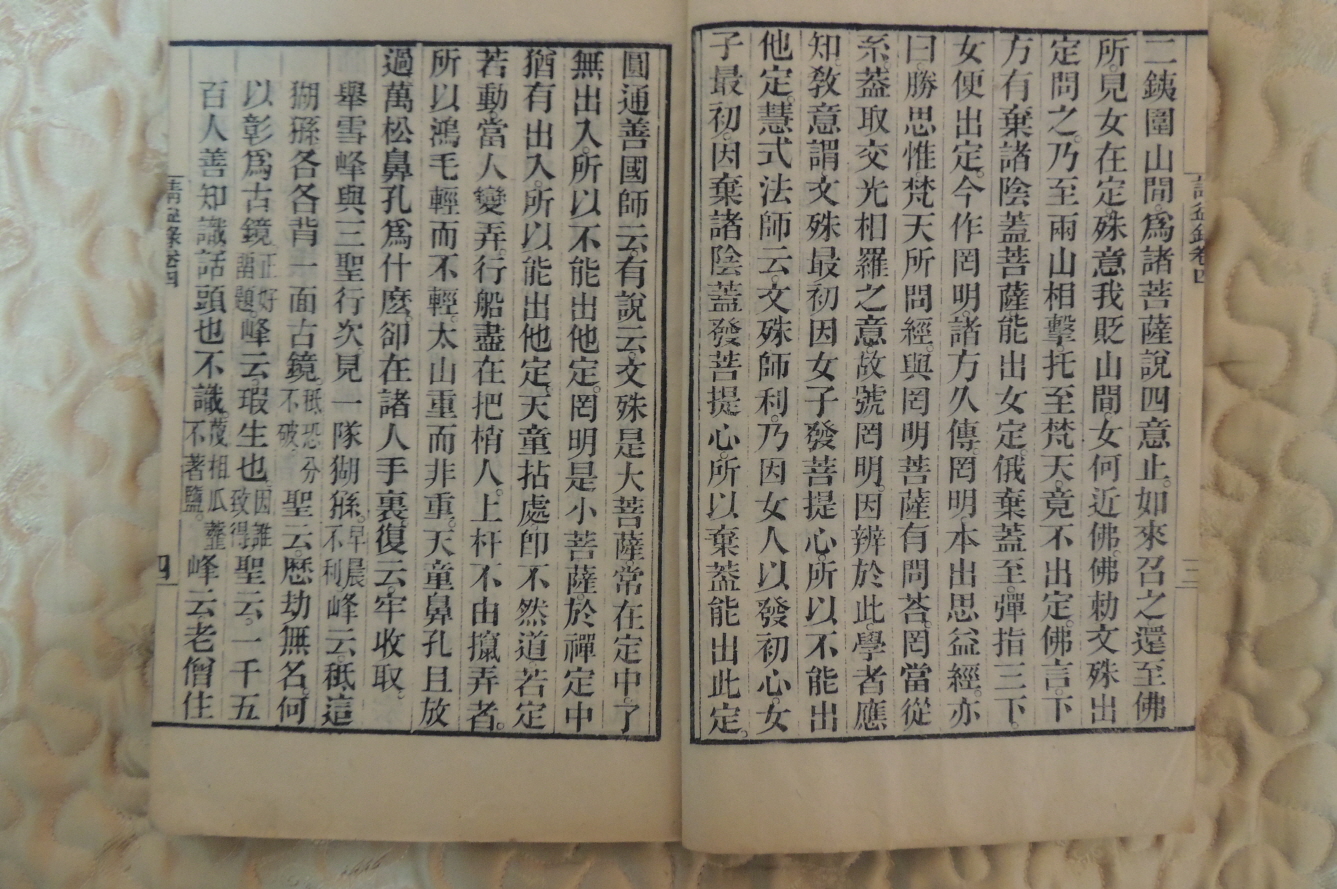 二鐵圍山間。爲諸菩薩說四意止。如來召之還至佛
所。見女在定。殊意我貶山間。女何近佛。佛勅文殊出
定問之。乃至兩山相擊。托至梵天。竟不出定。佛言。下
方有棄諸陰蓋菩薩。能出女定。俄棄蓋至。彈指三下。
女便出定。今作罔明。諸方久傳。罔明本出思益經。亦
曰。勝思惟梵天所問經。與罔明菩薩有問荅。罔當從
系。葢取交光相羅之意。故號罔明。因辨於此。學者應
知。敎意謂文殊最初因女子發菩提心。所以不能出
他定。慧式法師云。文殊師利。乃因女人以發初心。女
子最初。因棄諸陰蓋發菩提心。所以棄葢能出此定。
圓通善國師云。有說云。文殊是大菩薩。常在定中。了
無出入。所以不能出他定。罔明是小菩薩。於禪定中
猶有出入。所以能出他定。天童拈處。卽不然道。若定
若動。當人變弄。行船盡在把梢人。上杆不由攛弄者。
所以鴻毛輕而不輕。太山重而非重。天童鼻孔。且放
過萬松鼻孔爲什麼。卻在諸人手裏。復云。牢收取。
舉雪峰與三聖行次。見一隊猢猻。早晨不利峰云。秖這
猢猻各各背一面古鏡。秖恐分不破。聖云。歷劫無名。何
以彰爲古鏡。正好著題。峰云。瑕生也。因誰致得聖云。一千五
百人善知識。話頭也不識。茂相瓜虀不著鹽。峰云。老僧住
請益錄卷四
三
請益錄卷四
四